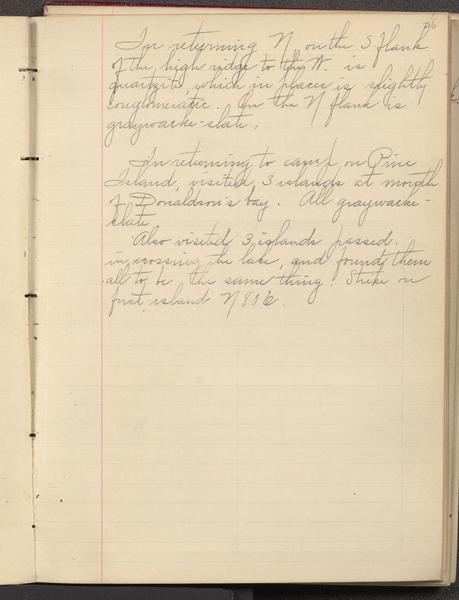 96
In returning N, on the S flank
of the high ridge to the W. is
quartzite, which in places is slightly
conglomeratic. On the N flank is
graywacke-slate.
In returning to camp on Pine
Island, visited 3 islands at mouth
of Donaldson's bay. All graywacke-
slate
Also visited 3 islands passed
in crossing the lake, and found them
all to be the same thing. Strike on
first island N 80 E.